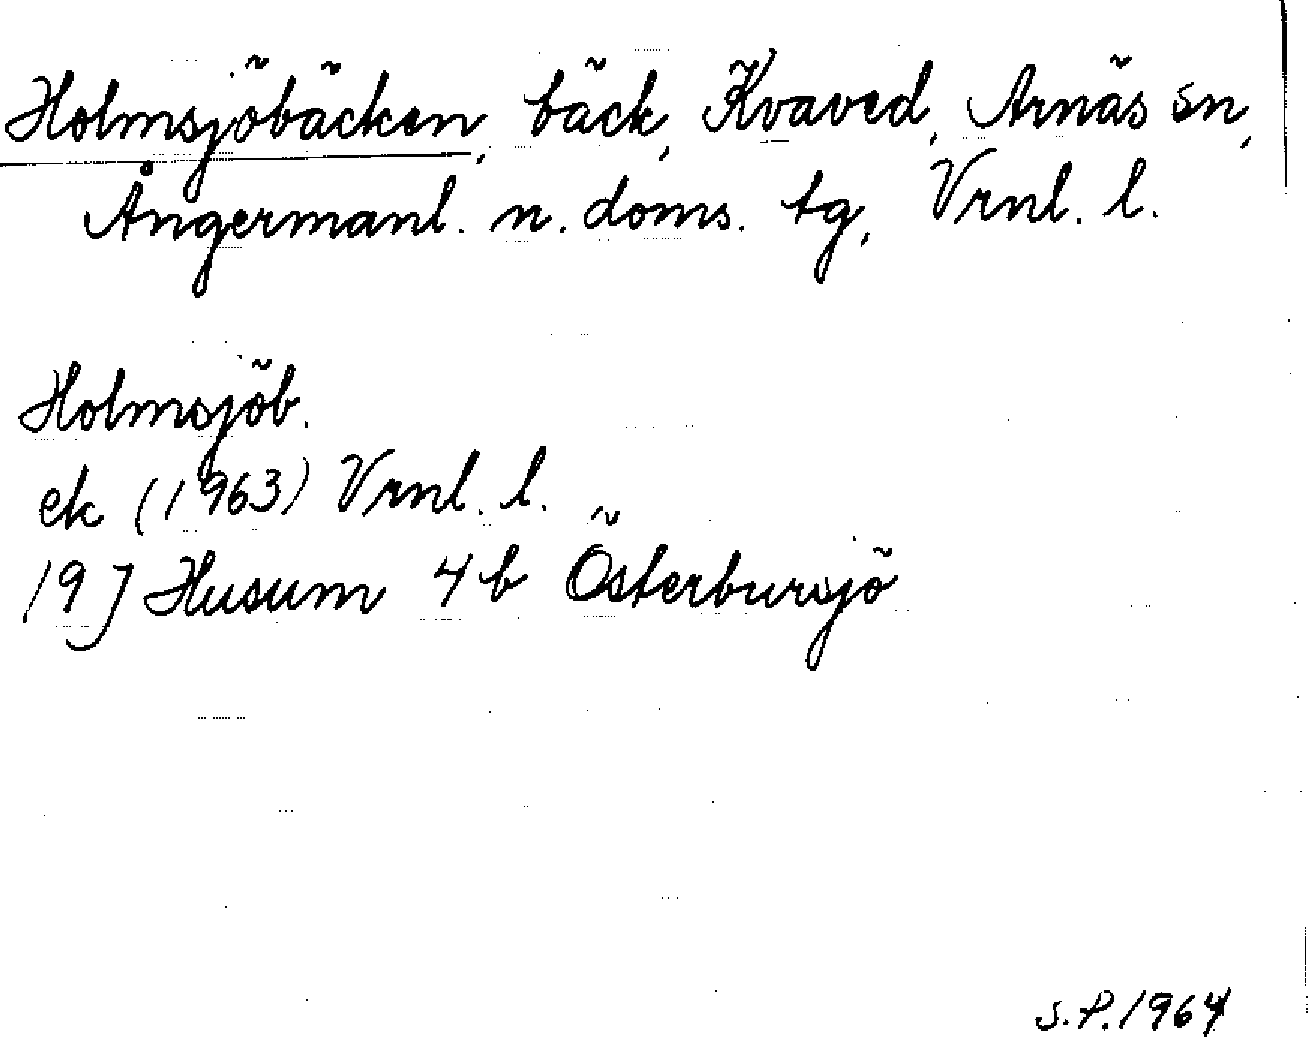 Holmsjöbäcken, bäck, Kvaved, Arnäs sn,
Ångermanl. n. doms. tg, Vrnl. l.
Holmsjöb.
ek (1963) Vrnl. l.
19 J Husum 4 b Österbursjö
S.P. 1964